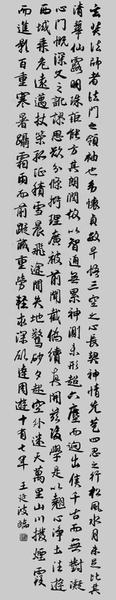 玄奘法師者法門之領袖也幼懷貞敏早悟三空之心長契神情先苞四忍之行松風水月未足比其
清華仙露明珠詎能方其朗潤故以智通無累神測未形超六塵而迥出隻千古而無對凝
心門慨深文之訛謬思欲分條析理廣彼前聞截偽續真開茲後學是以翹心淨土往遊
西域乘危遠邁杖策孤征積雪晨飛途間失地驚砂夕起空外迷天萬里山川撥煙霞
而進影百重寒暑躡霜雨而前蹤誠重勞輕求深願達周遊十有七年 王延波臨